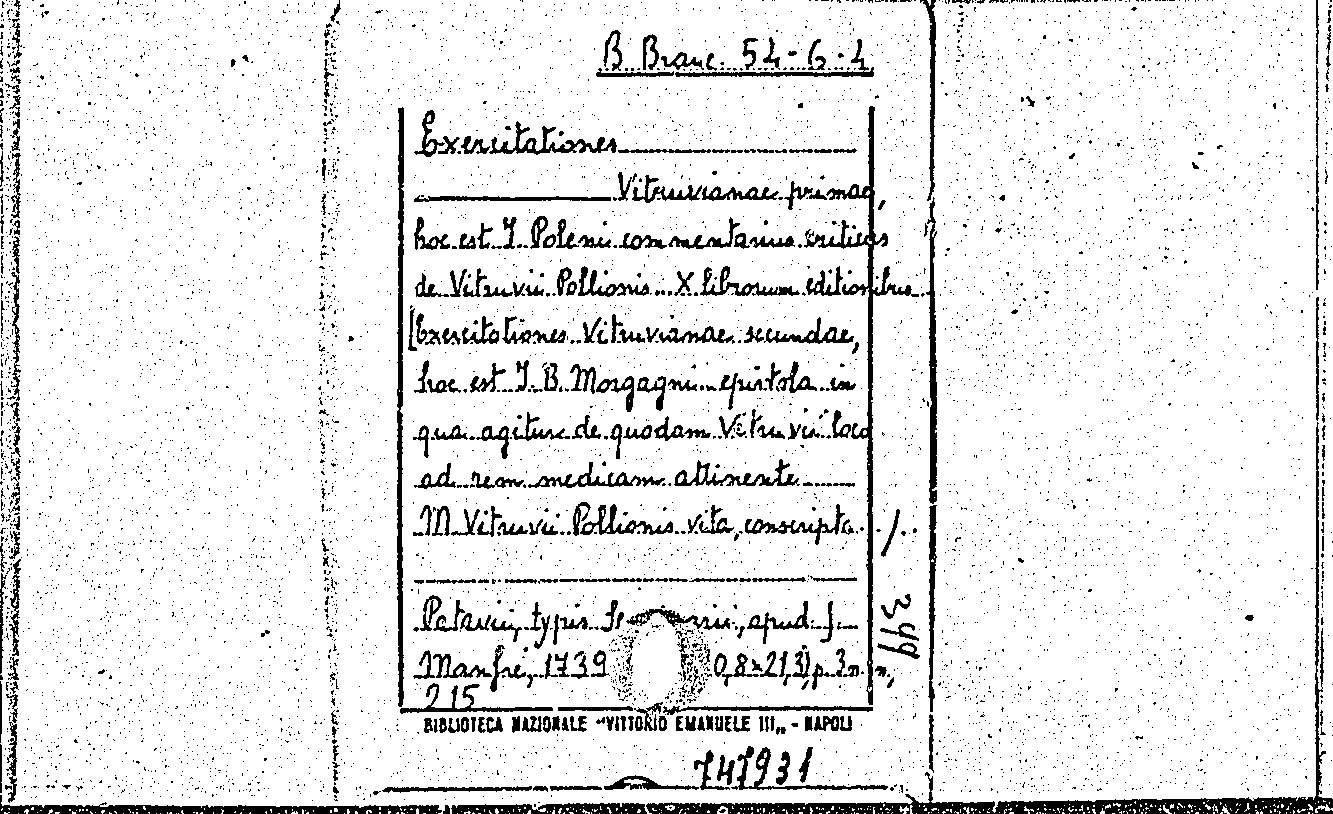 B. Branc. 54-6-4
Exercitationes
Vitruvianae primae,
hoc est J. Poleni commentarius criticus
de Vitruvii Pollionis X librorum editionibus
[Exercitationes Vitruvianae secundae,
hoc est J. B. Morgagni epistola in
qua agitur de quodam Vitruvii loco
ad rem medicam attinente
M Vitruvii Pollionis vita, conscripta ./.
Patavii, typis Se rii, apud J.
Manfrè, 1739 0,8×21,3) p. 3 n. n.,
215
399
BIBLIOTECA NAZIONALE "VITTORIO EMANUELE III„ - NAPOLI
747931